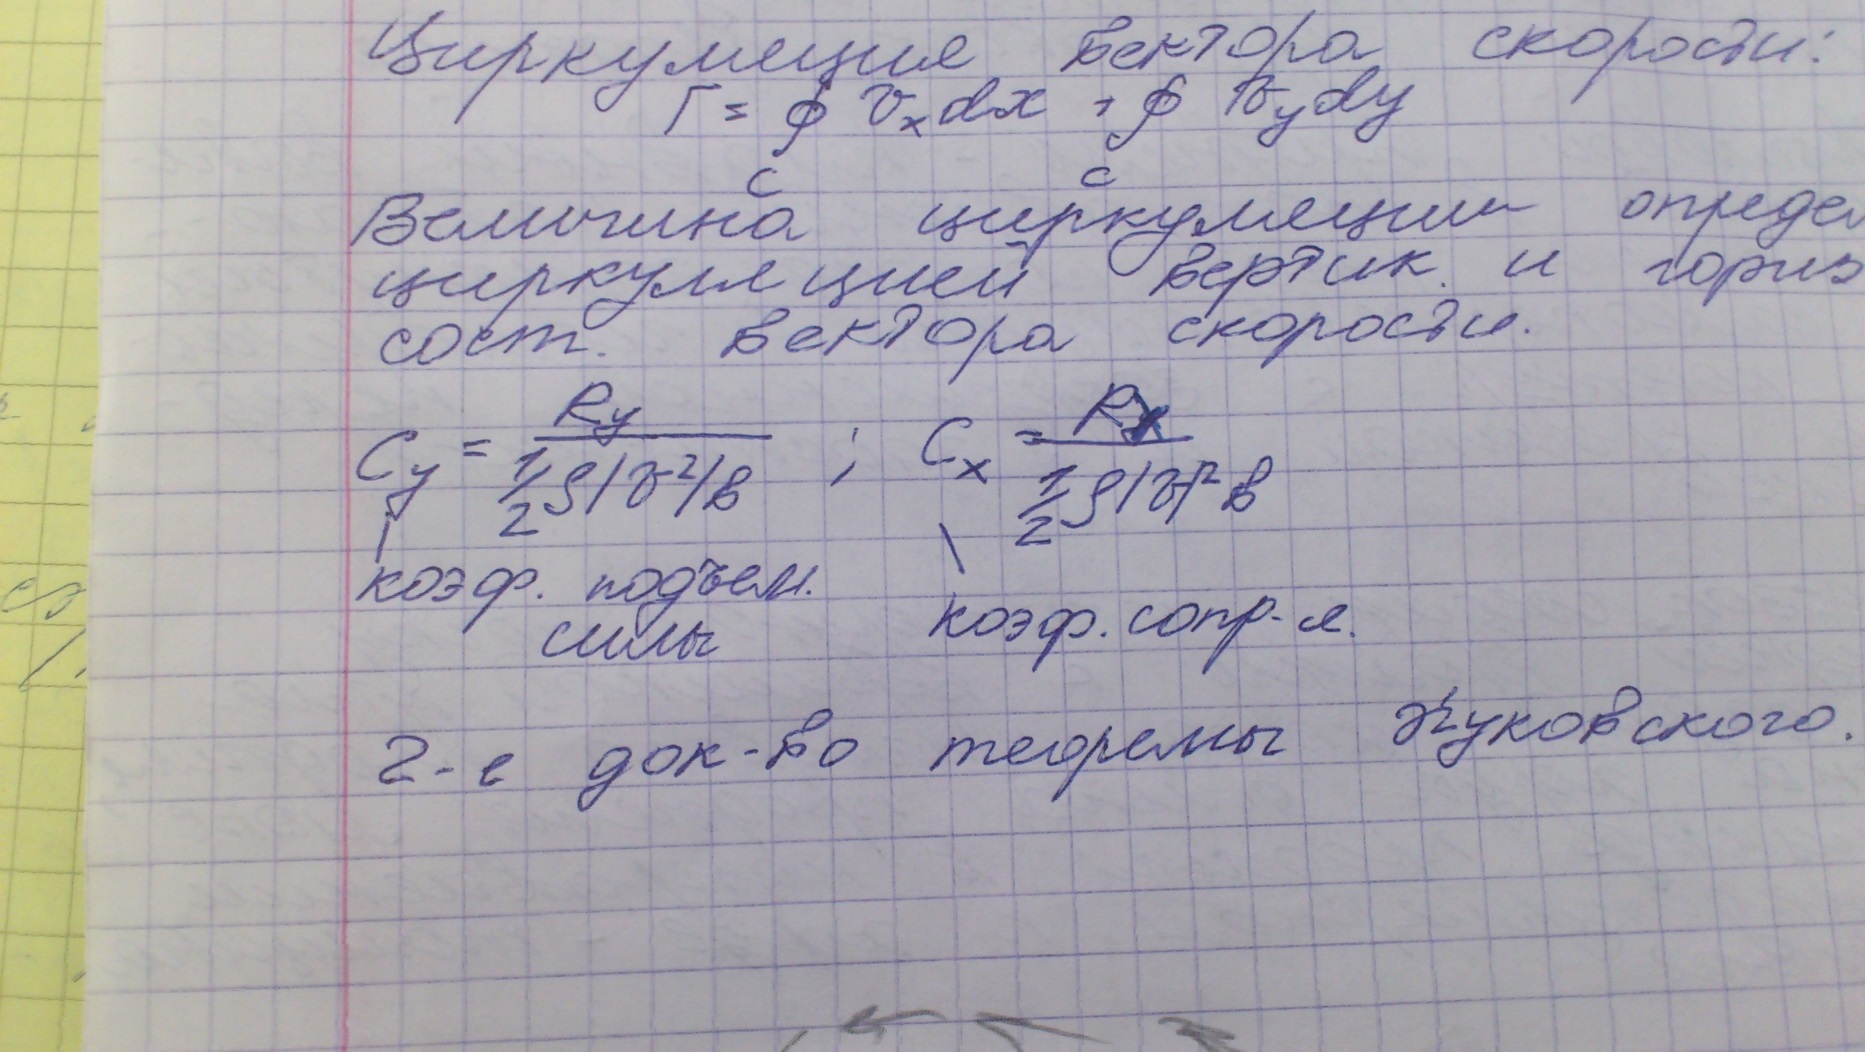 Циркуляция вектора скорости:
Г = ∮ v_x dx + ∮ v_y dy
c c
Величина циркуляции определ
циркуляцией вертик. и гориз
сост. вектора скорости.
C_y = R_y / (1/2 ρ|v²|b) ; C_x = R_x / (1/2 ρ|v|² b)
коэф. подъем. коэф. сопр-я.
силы
2-е док-во теоремы Жуковского.